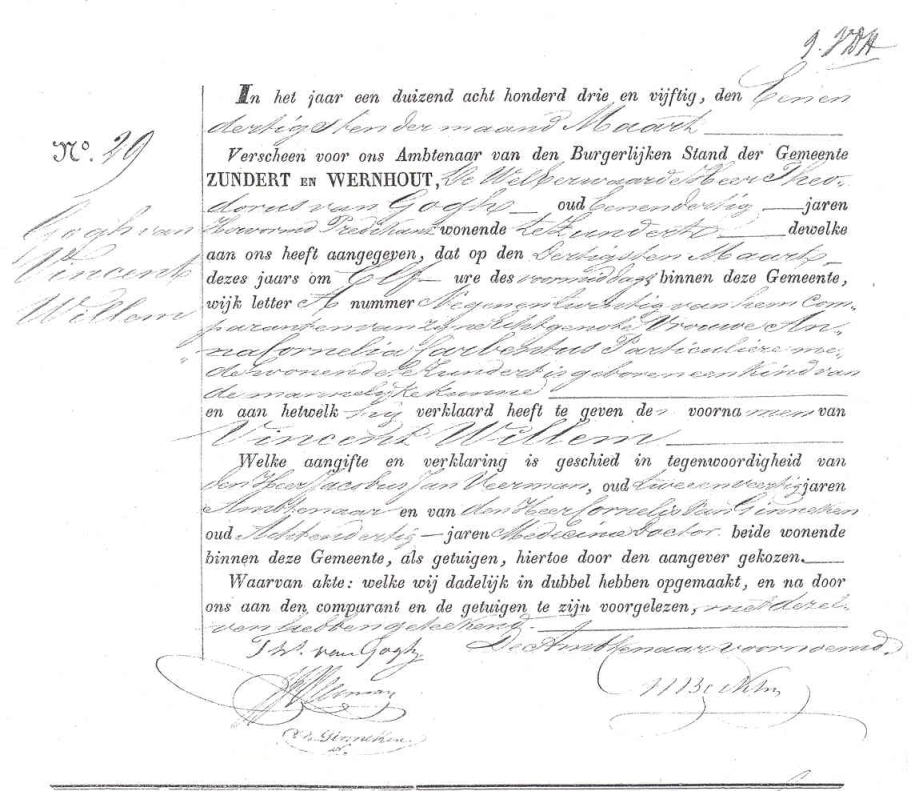 In het jaar een duizend acht honderd drie en vijftig, den Eenen
dertigsten der maand Maart
No. 29
Verscheen voor ons Ambtenaar van den Burgerlijken Stand der Gemeente
ZUNDERT EN WERNHOUT, De WelEerwaarde Heer Theo-
dorus van Gogh oud Eenendertig jaren
Gogh van
Vincent
Willem
Hervormd Predikant wonende te Zundert dewelke
aan ons heeft aangegeven, dat op den Dertigsten Maart
dezes jaars om Elf ure des voormiddags binnen deze Gemeente,
wijk letter A nummer Negenentwintig van hem Com-
parant en van zijne Echtgenote Vrouwe An-
na Cornelia Carbentus Particuliere me-
de wonende te Zundert is geboren een Kind van
de mannelijke kunne
en aan hetwelk hij verklaard heeft te geven den voornamen van
Vincent Willem
Welke aangifte en verklaring is geschied in tegenwoordigheid van
den Heer Jacobus Jan Veerman, oud tweeenveertig jaren
Ambtenaar en van den Heer Cornelis van Ginneken
oud Achtendertig jaren Medicina Doctor beide wonende
binnen deze Gemeente, als getuigen, hiertoe door den aangever gekozen.
Waarvan akte: welke wij dadelijk in dubbel hebben opgemaakt, en na door
ons aan den comparant en de getuigen te zijn voorgelezen, met dezel-
ven hebben geteekend.
Ths. van Gogh De Ambtenaar voornoemd.
Veerman
v. Ginneken